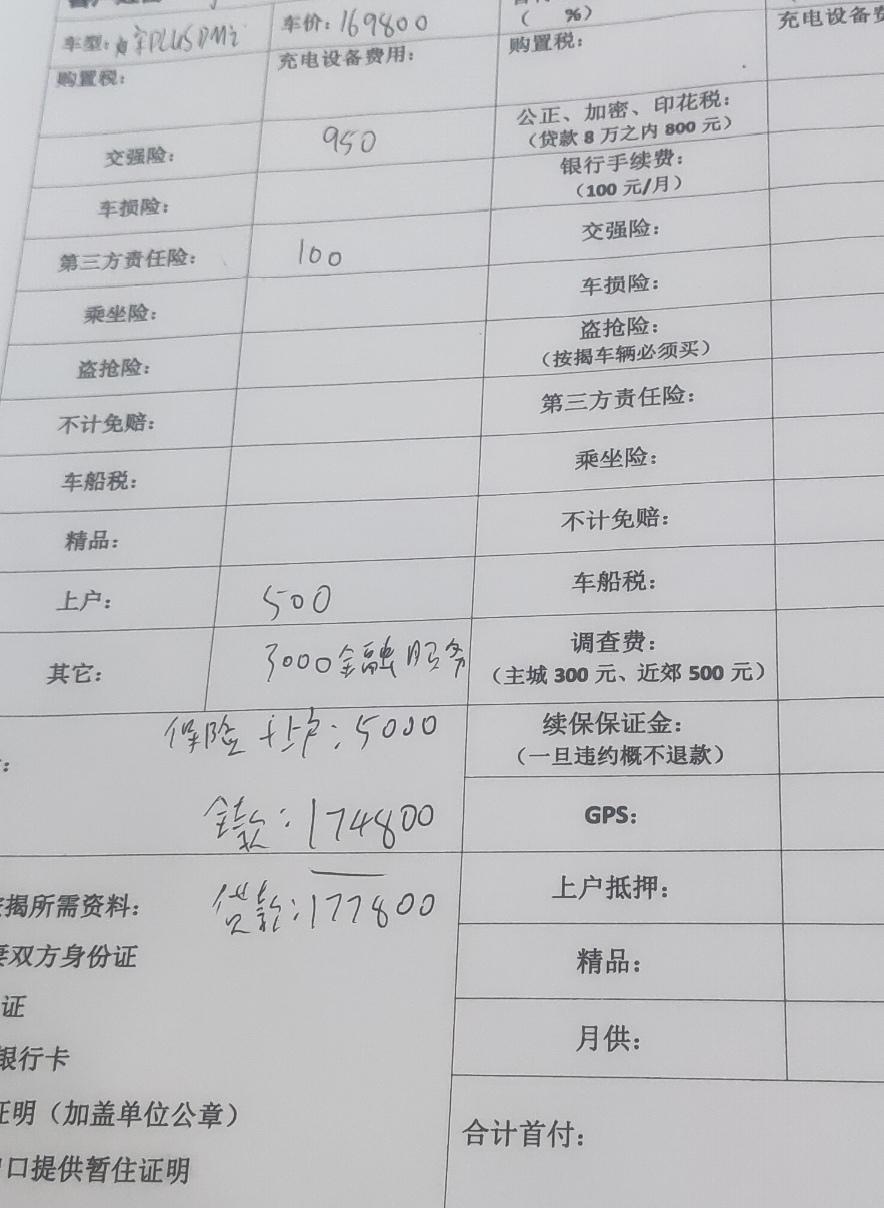 车型：宋PLUSDMi 车价：169800 （ %）
购置税： 充电设备费用： 购置税： 充电设备费
交强险： 950 公正、加密、印花税：
（贷款 8 万之内 800 元）
车损险： 银行手续费：
（100 元/月）
第三方责任险： 100 交强险：
乘坐险： 车损险：
盗抢险： 盗抢险：
（按揭车辆必须买）
不计免赔： 第三方责任险：
车船税： 乘坐险：
精品： 不计免赔：
上户： 500 车船税：
其它： 3000金融服务 调查费：
（主城 300 元、近郊 500 元）
保险+上户：5000 续保保证金：
（一旦违约概不退款）
：
全款：174800 GPS：
贷款：177800 上户抵押：
揭所需资料：
妻双方身份证 精品：
证
银行卡 月供：
证明（加盖单位公章）
合计首付：
口提供暂住证明